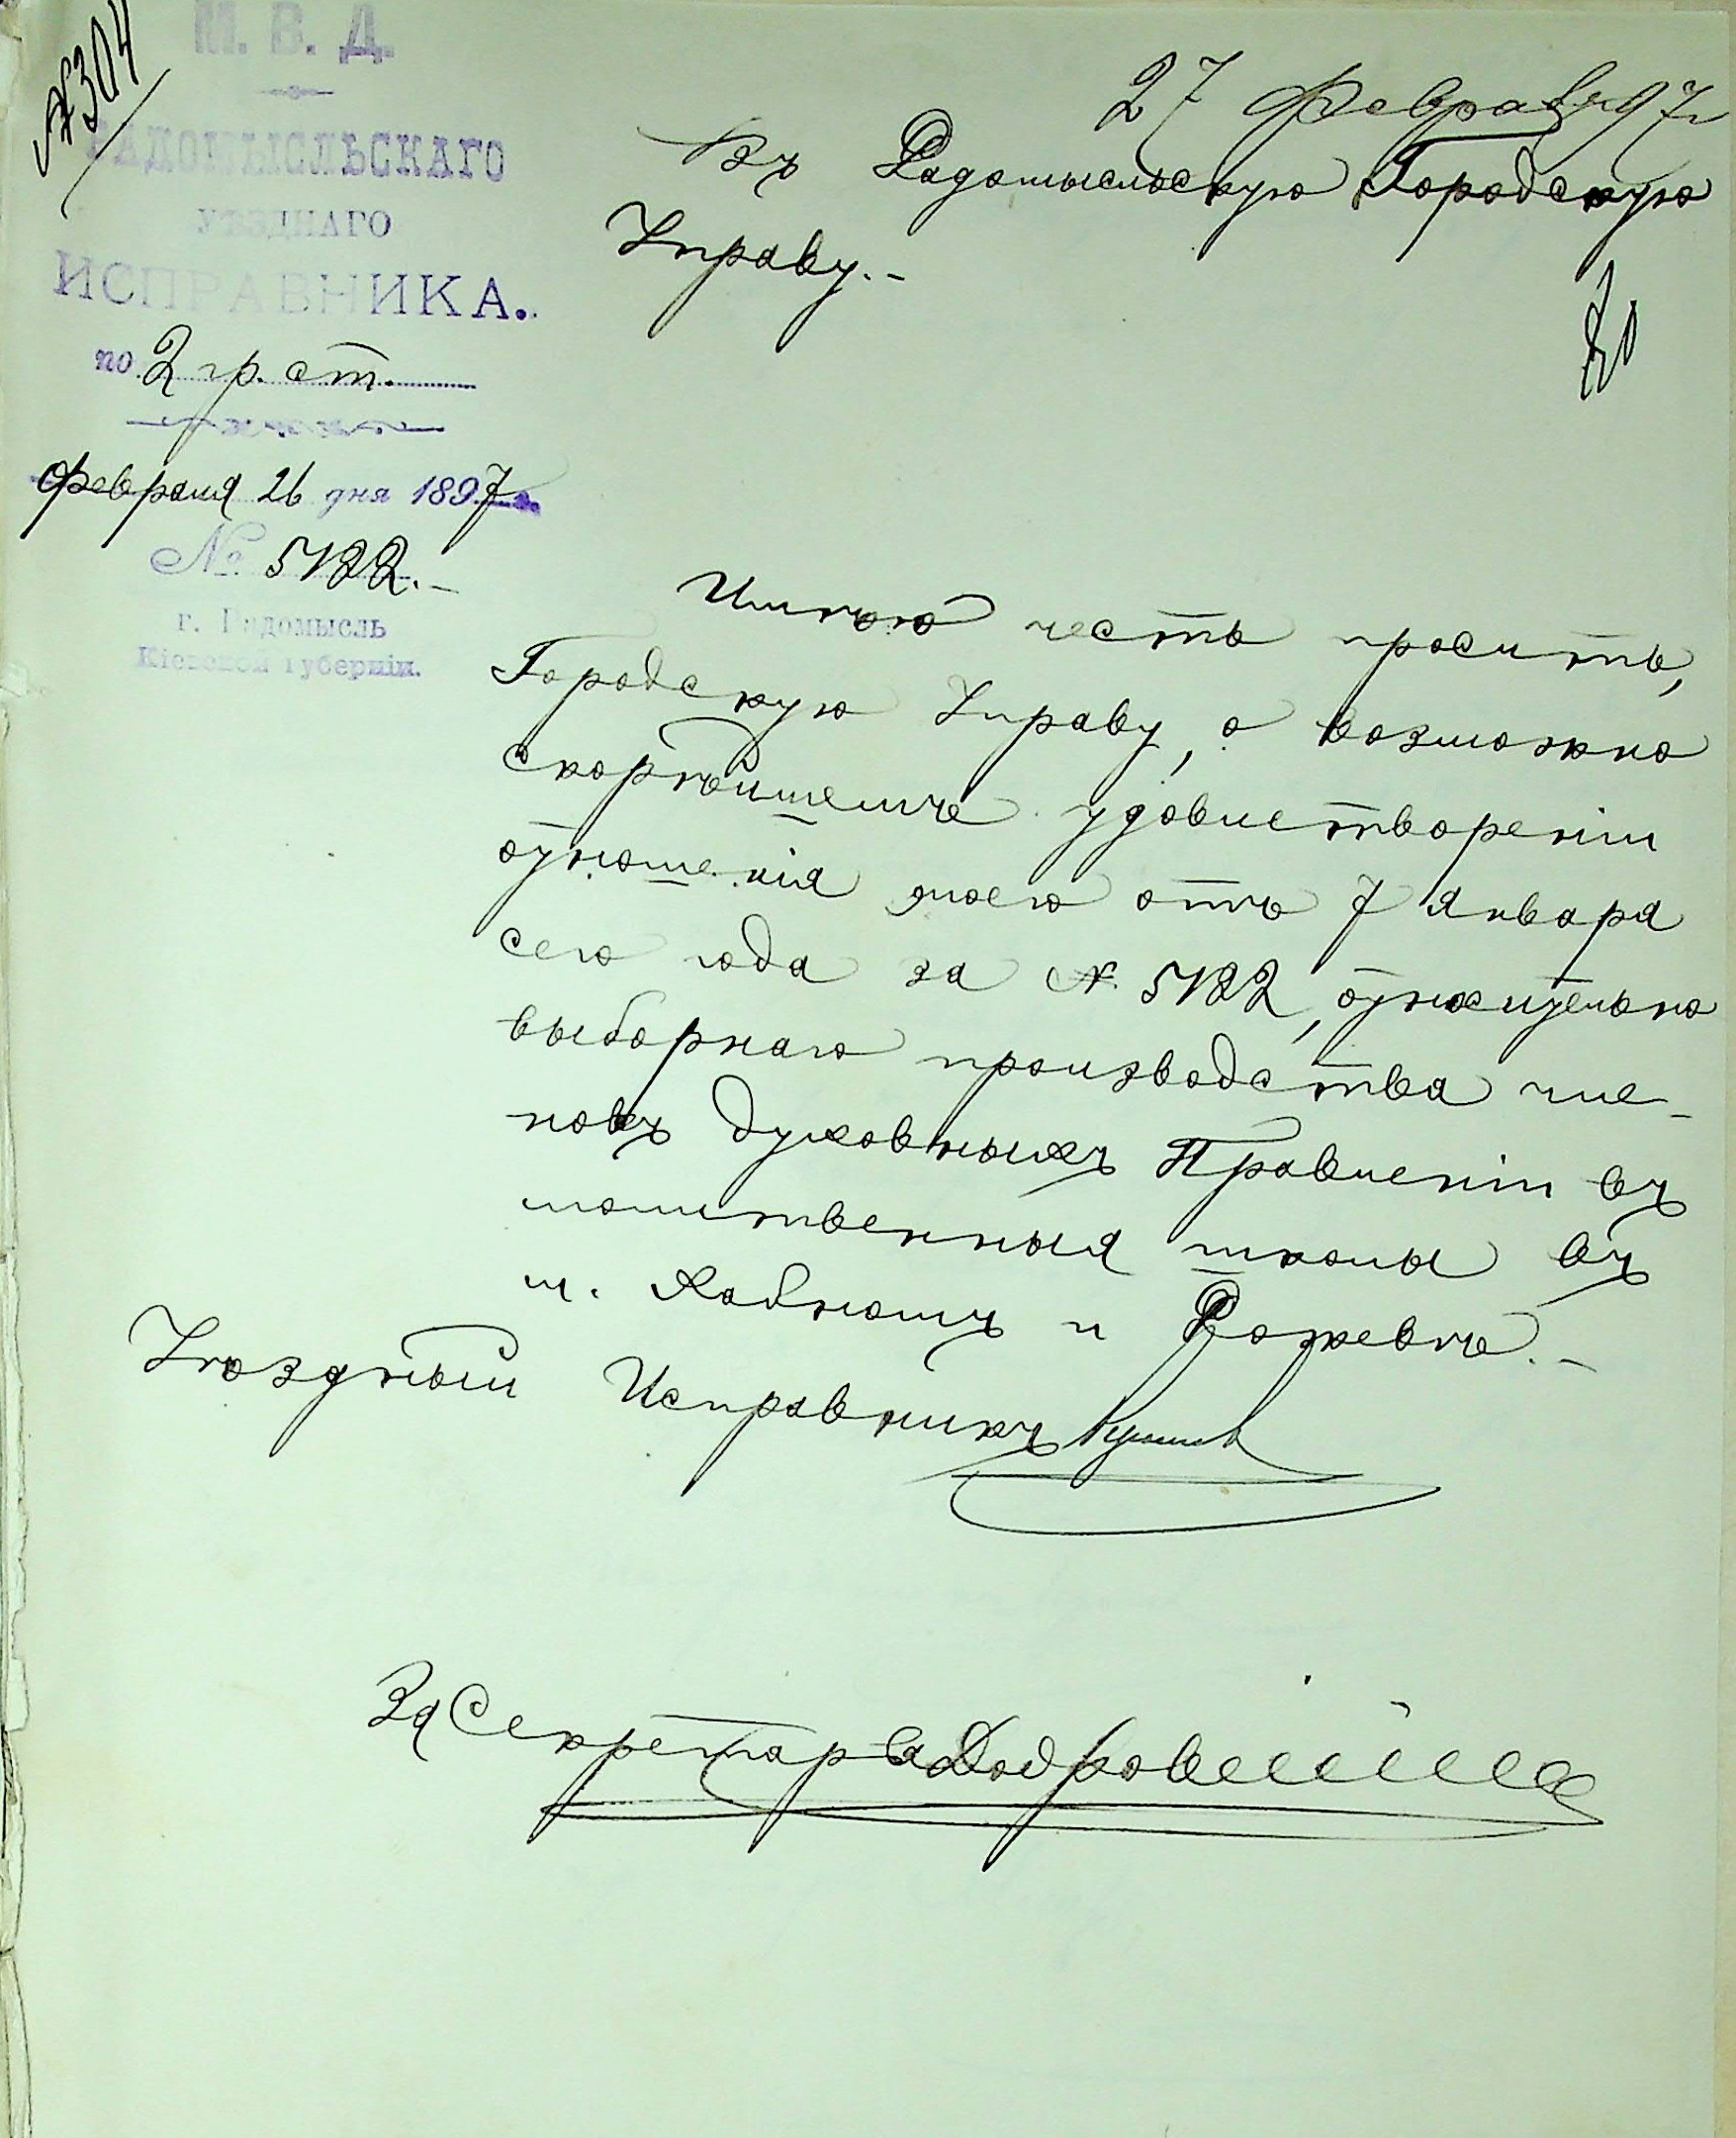 № 304
М. В. Д.
РАДОМЫСЛЬСКАГО
УѢЗДНАГО
ИСПРАВНИКА.
по 2 гр. ст.
Февраля 26 дня 1897 г.
№ 5122.-
г. Радомысль
Кіевской губерніи.
27 Февраля 97 г
Въ Радомысльскую Городскую
Управу.-
Имѣю честь просить,
Городскую Управу, о возможно
скорѣйшемъ удовлетвореніи
отношенія моего отъ 7 Января
сего года за № 5122, относительно
выборнаго производства чле-
новъ духовныхъ Правленій въ
молитвенныя школы въ
м. Хабномъ и Рожевѣ.-
Уѣздный Исправникъ
За Секретаря